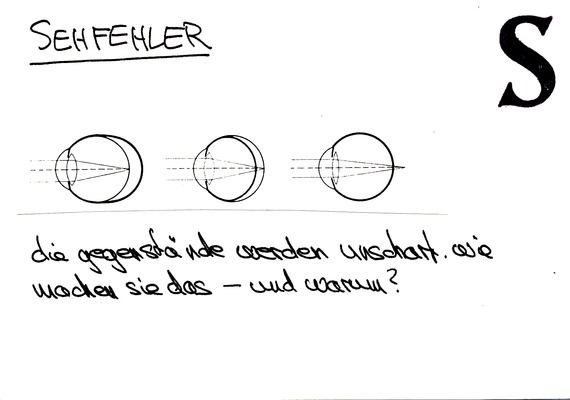 SEHFEHLER
S
die gegenstände werden unscharf. wie
machen sie das – und warum?